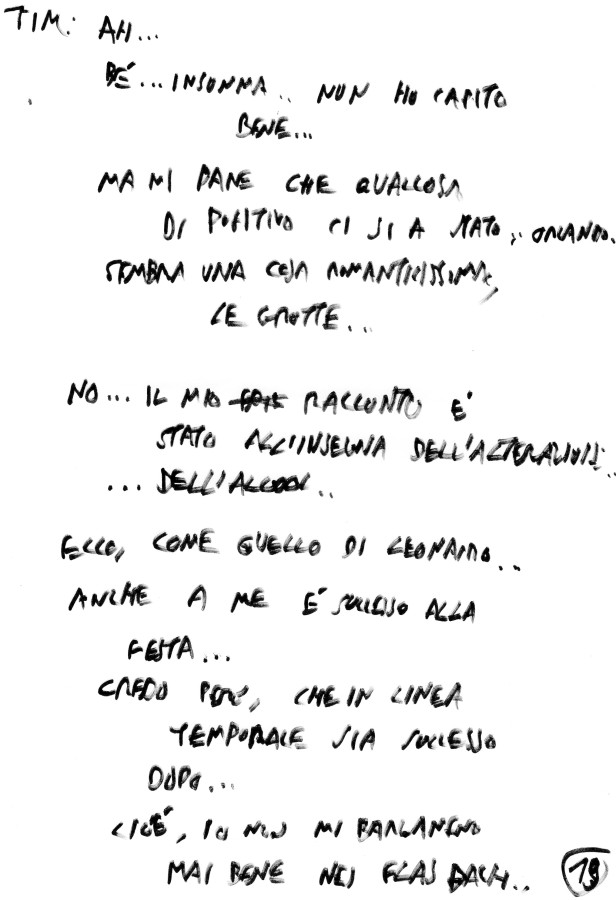 TIM: AH...
BÉ... INSOMMA.. NON HO CAPITO
BENE...
MA MI PARE CHE QUALCOSA
DI POSITIVO CI SIA STATO, ORLANDO.
SEMBRA UNA COSA ROMANTICISSIMA,
LE GROTTE...
NO... IL MIO RACCONTO E'
STATO ALL'INSEGNA DELL'ALTERAZIONE..
... DELL'ALCOOL..
ECCO, COME QUELLO DI LEONARDO..
ANCHE A ME E' SUCCESSO ALLA
FESTA...
CREDO PERO', CHE IN LINEA
TEMPORALE SIA SUCCESSO
DOPO...
CIOE', IO NON MI
MAI BENE NEI FLASHBACK..
19